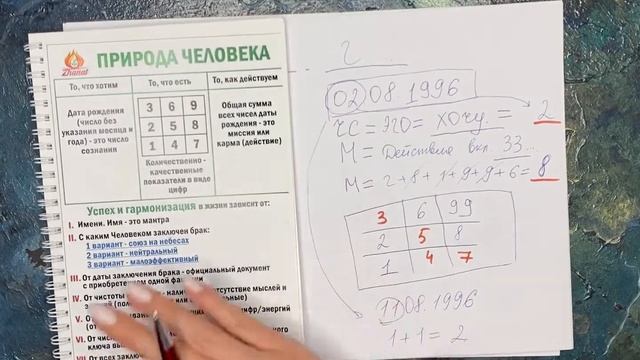 Zhanat
ПРИРОДА ЧЕЛОВЕКА
То, что хотим
То, что есть
То, как действуем
Дата рождения
(число без
указания месяца и
года) - это число
сознания
3 6 9
2 5 8
1 4 7
Количественно -
качественные
показатели в виде
цифр
Общая сумма
всех чисел даты
рождения - это
миссия или
карма (действие)
Успех и гармонизация в жизни зависят от:
I. Имени. Имя - это мантра
II. С каким Человеком заключен брак:
1 вариант - союз на небесах
2 вариант - нейтральный
3 вариант - малоэффективный
III. От даты заключения брака - официальный документ
с приобретен одной фа
IV. От чистоты налич отсутствие мыслей и
V.
цифр/энергий
VI. От чис
ключа вы
VII. От всех заключ
2
02 08 1996
ЧС = ЭГО = ХОЧУ = 2
М = Действие вкл. 33...
М = 2+8+1+9+9+6= 8
3 6 99
2 5 8
1 4 7
11 08. 1996
1+1 = 2